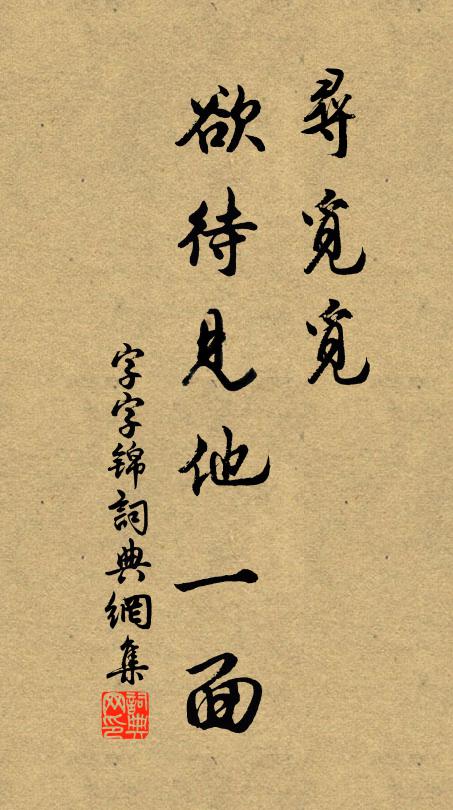 尋覓覓
欲待見他一面
字字锦詞典網集
詞典网印